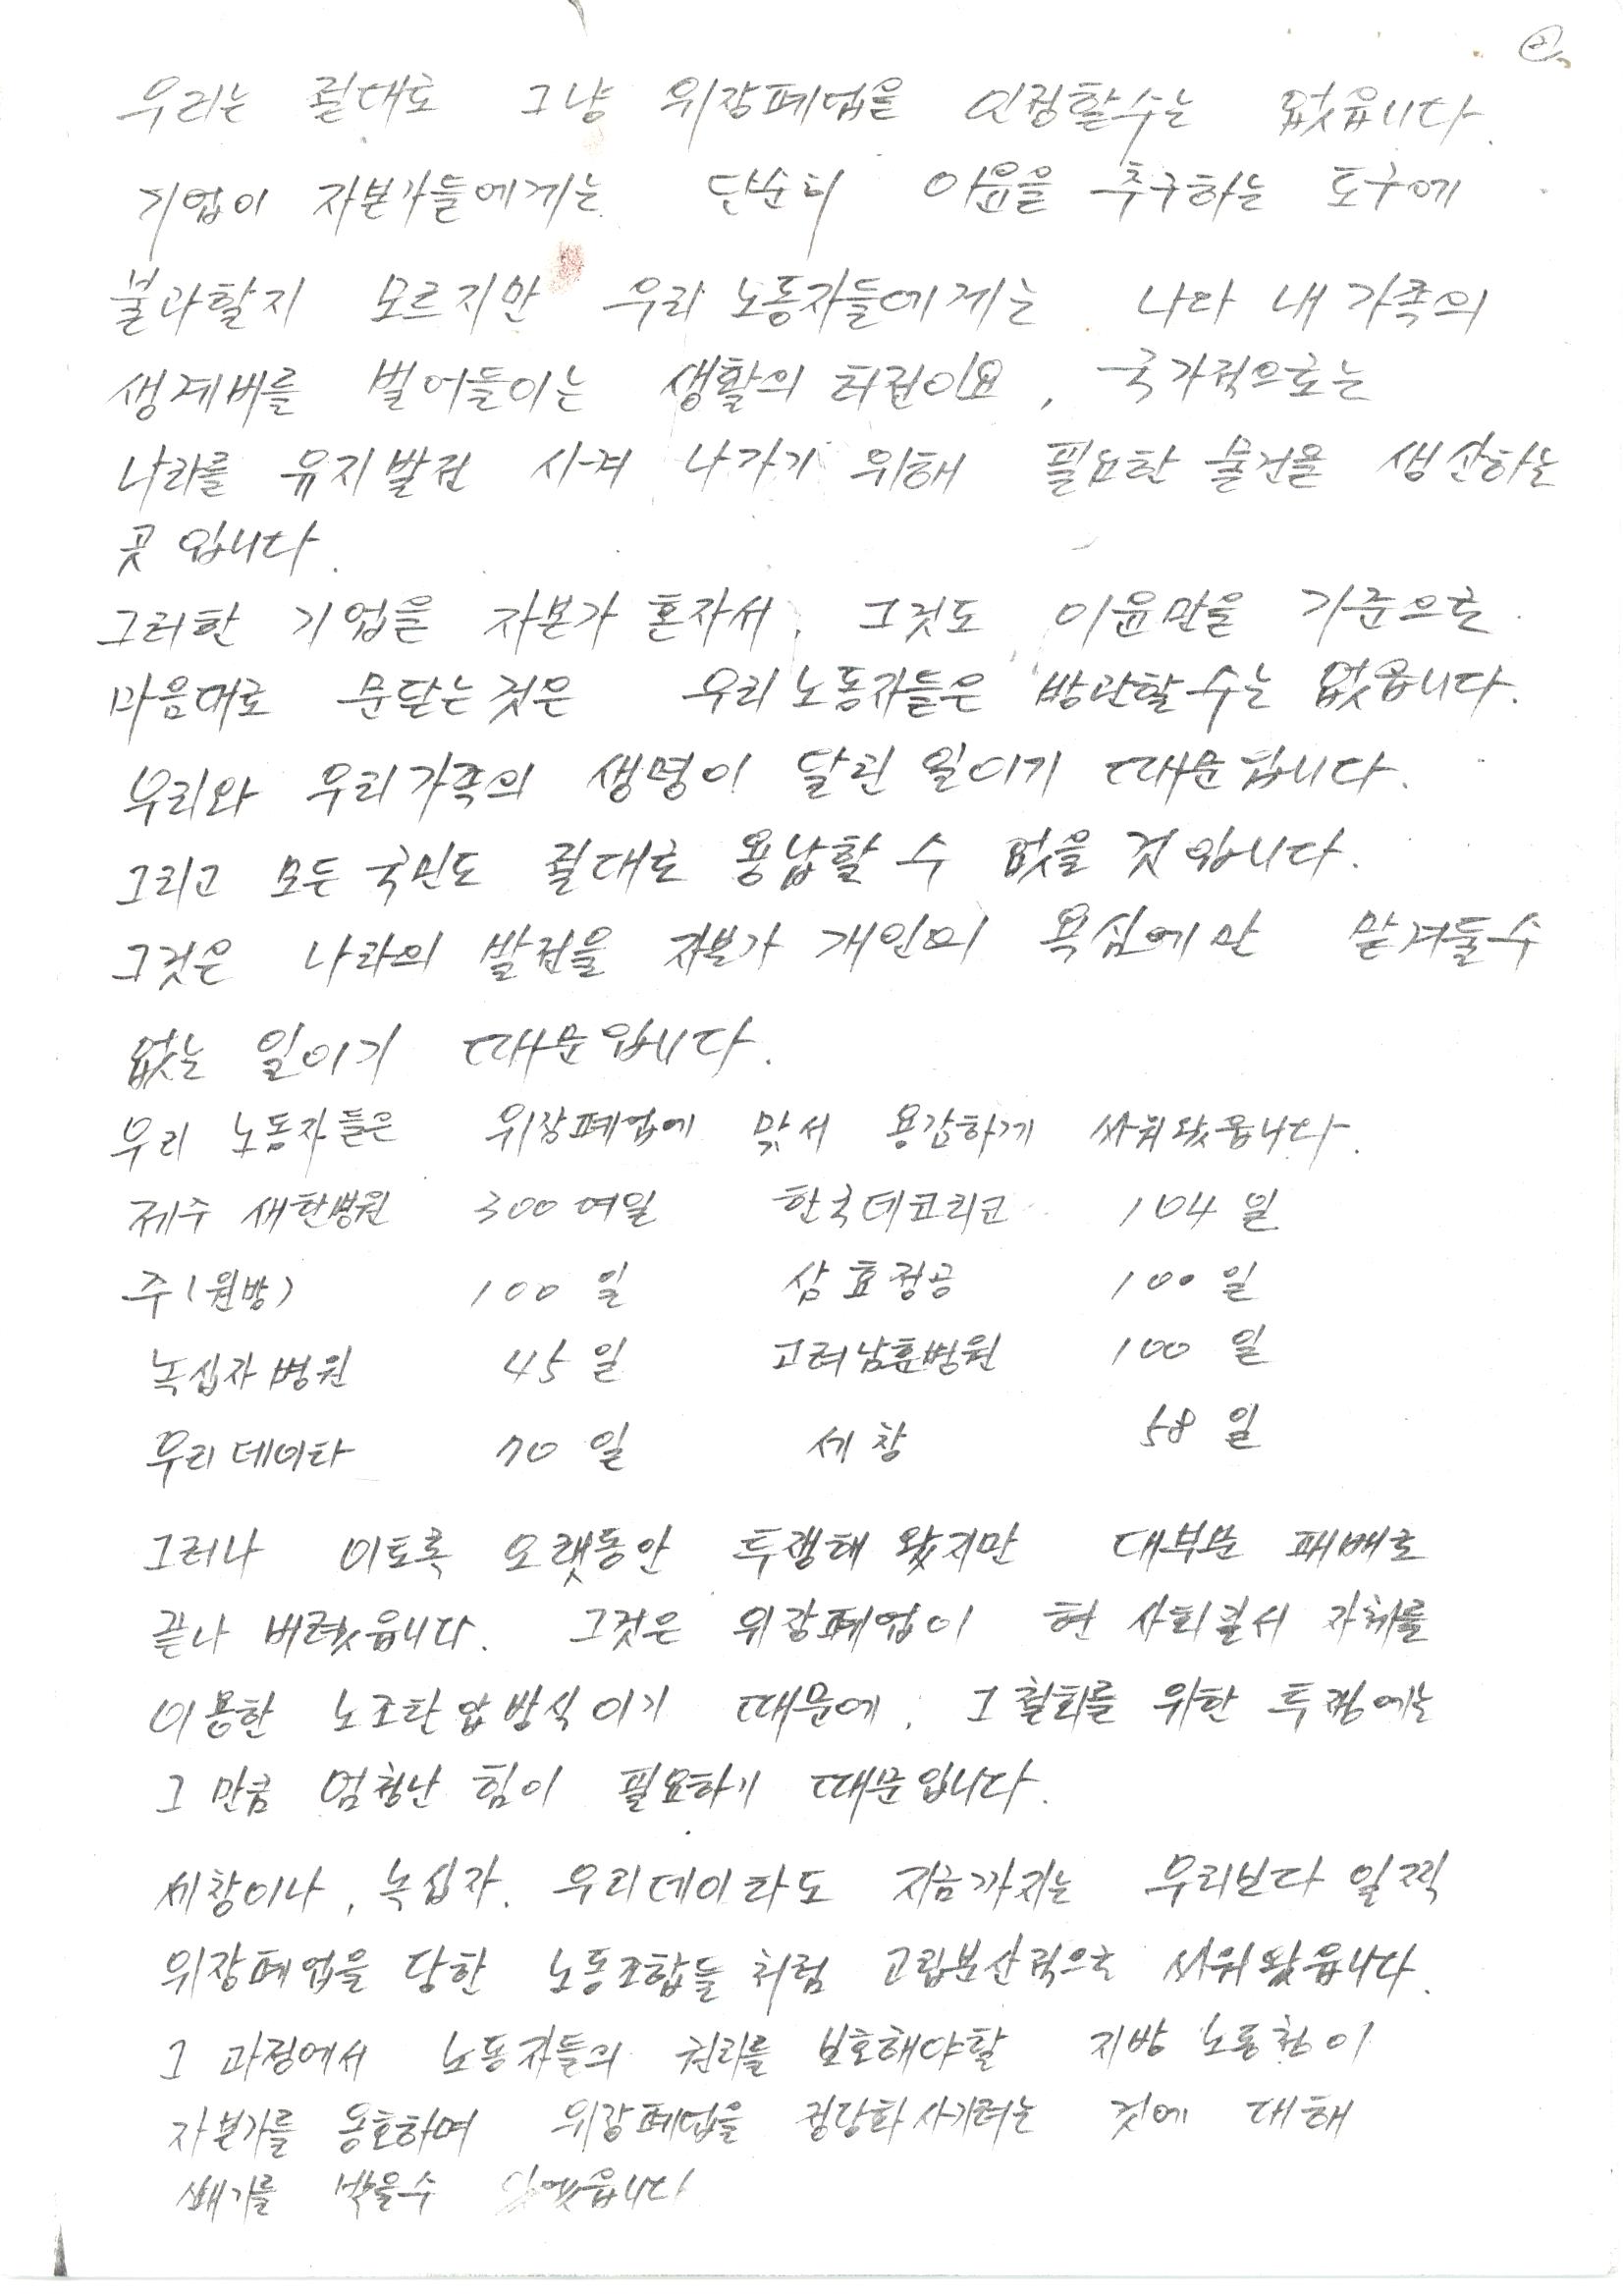 ②
우리는 절대로 그냥 위장폐업을 인정할수는 없읍니다.
기업이 자본가들에게는 단순히 이윤을 추구하는 도구에
불과할지 모르지만 우리 노동자들에게는 나와 내 가족의
생계비를 벌어들이는 생활의 터전이요, 국가적으로는
나라를 유지발전 시켜 나가기 위해 필요한 물건을 생산하는
곳 입니다.
그러한 기업을 자본가 혼자서, 그것도 이윤만을 기준으로
마음대로 문닫는것은 우리노동자들은 방관할 수는 없읍니다.
우리와 우리가족의 생명이 달린 일이기 때문입니다.
그리고 모든 국민도 절대로 용납할 수 없을 것 입니다.
그것은 나라의 발전을 자본가 개인의 욕심에만 맡겨둘수
없는 일이기 때문입니다.
우리 노동자들은 위장폐업에 맞서 용감하게 싸워왔읍니다.
제주 새한병원 300여일 한국데코리코 104일
주(원방) 100일 삼효정공 100일
녹십자병원 45일 고려남훈병원 100일
우리데이타 70일 세창 58일
그러나 이토록 오랫동안 투쟁해 왔지만 대부분 패배로
끝나 버렸읍니다. 그것은 위장폐업이 현 사회질서 자체를
이용한 노조탄압방식이기 때문에, 그 철회를 위한 투쟁에는
그 만큼 엄청난 힘이 필요하기 때문입니다.
세창이나, 녹십자, 우리데이타도 지금까지는 우리보다 일찍
위장폐업을 당한 노동조합들 처럼 고립분산적으로 싸워왔읍니다.
그 과정에서 노동자들의 권리를 보호해야할 지방 노동청이
자본가를 옹호하며 위장폐업을 정당화시키려는 것에 대해
쐐기를 박을수 있었읍니다